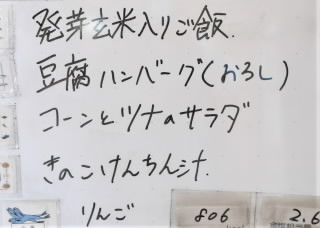 発芽玄米入りご飯.
豆腐ハンバーグ(おろし)
コーンとツナのサラダ
きのこけんちん汁.
りんご 806 2.6